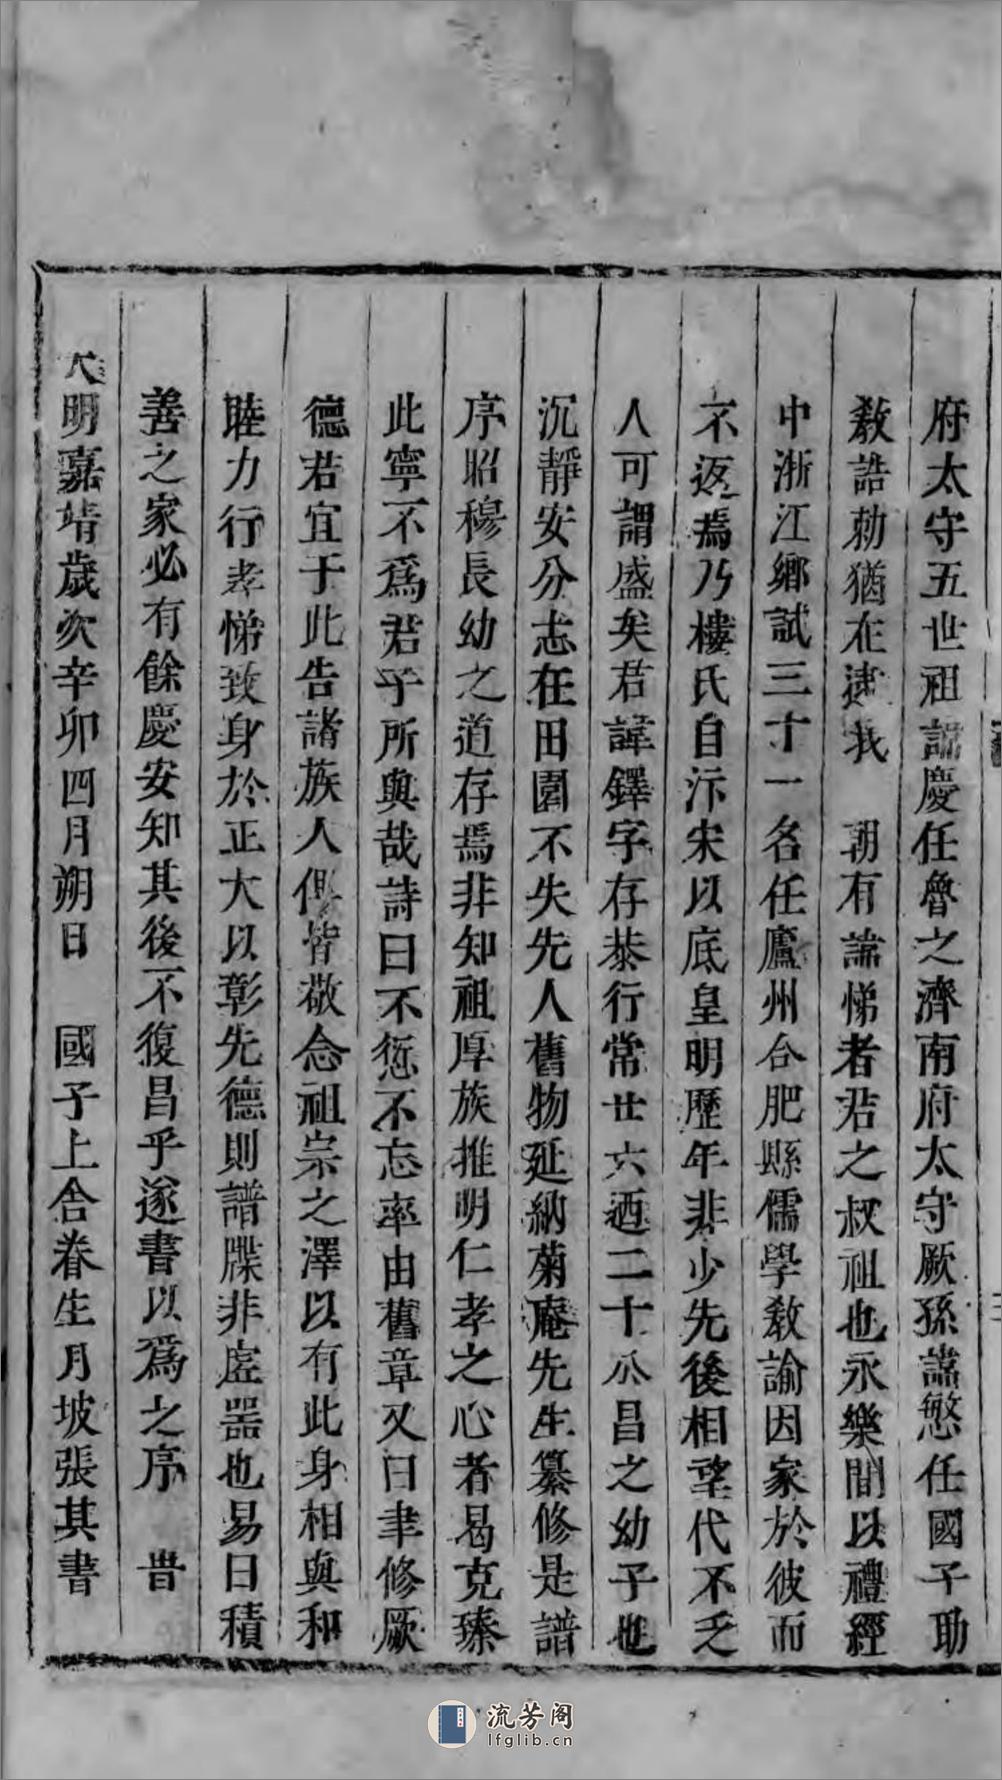 府太守五世祖諱慶任魯之濟南府太守厥孫諱慜任國子助
教誥勅猶在逮我　朝有諱悌者君之叔祖也永樂間以禮經
中浙江鄉試三十一名任廬州合肥縣儒學教諭因家於彼而
不返焉乃樓氏自汴宋以底皇明歷年非少先後相望代不乏
人可謂盛矣君諱鐸字存恭行常廿六迺二十昌之幼子也
沉靜安分志在田園不失先人舊物延納菊庵先生纂修是譜
序昭穆長幼之道存焉非知祖厚族推明仁孝之心者曷克臻
此寧不爲君乎所與哉詩曰不愆不忘率由舊章又曰聿修厥
德若宜于此告諸族人俱皆敬念祖宗之澤以有此身相與和
睦力行孝悌致身於正大以彰先德則譜牒非虛器也易曰積
善之家必有餘慶安知其後不復昌乎遂書以爲之序　旹
大明嘉靖歲次辛卯四月朔日　國子上舍眷生月坡張其書
流芳阁
lfglib.cn